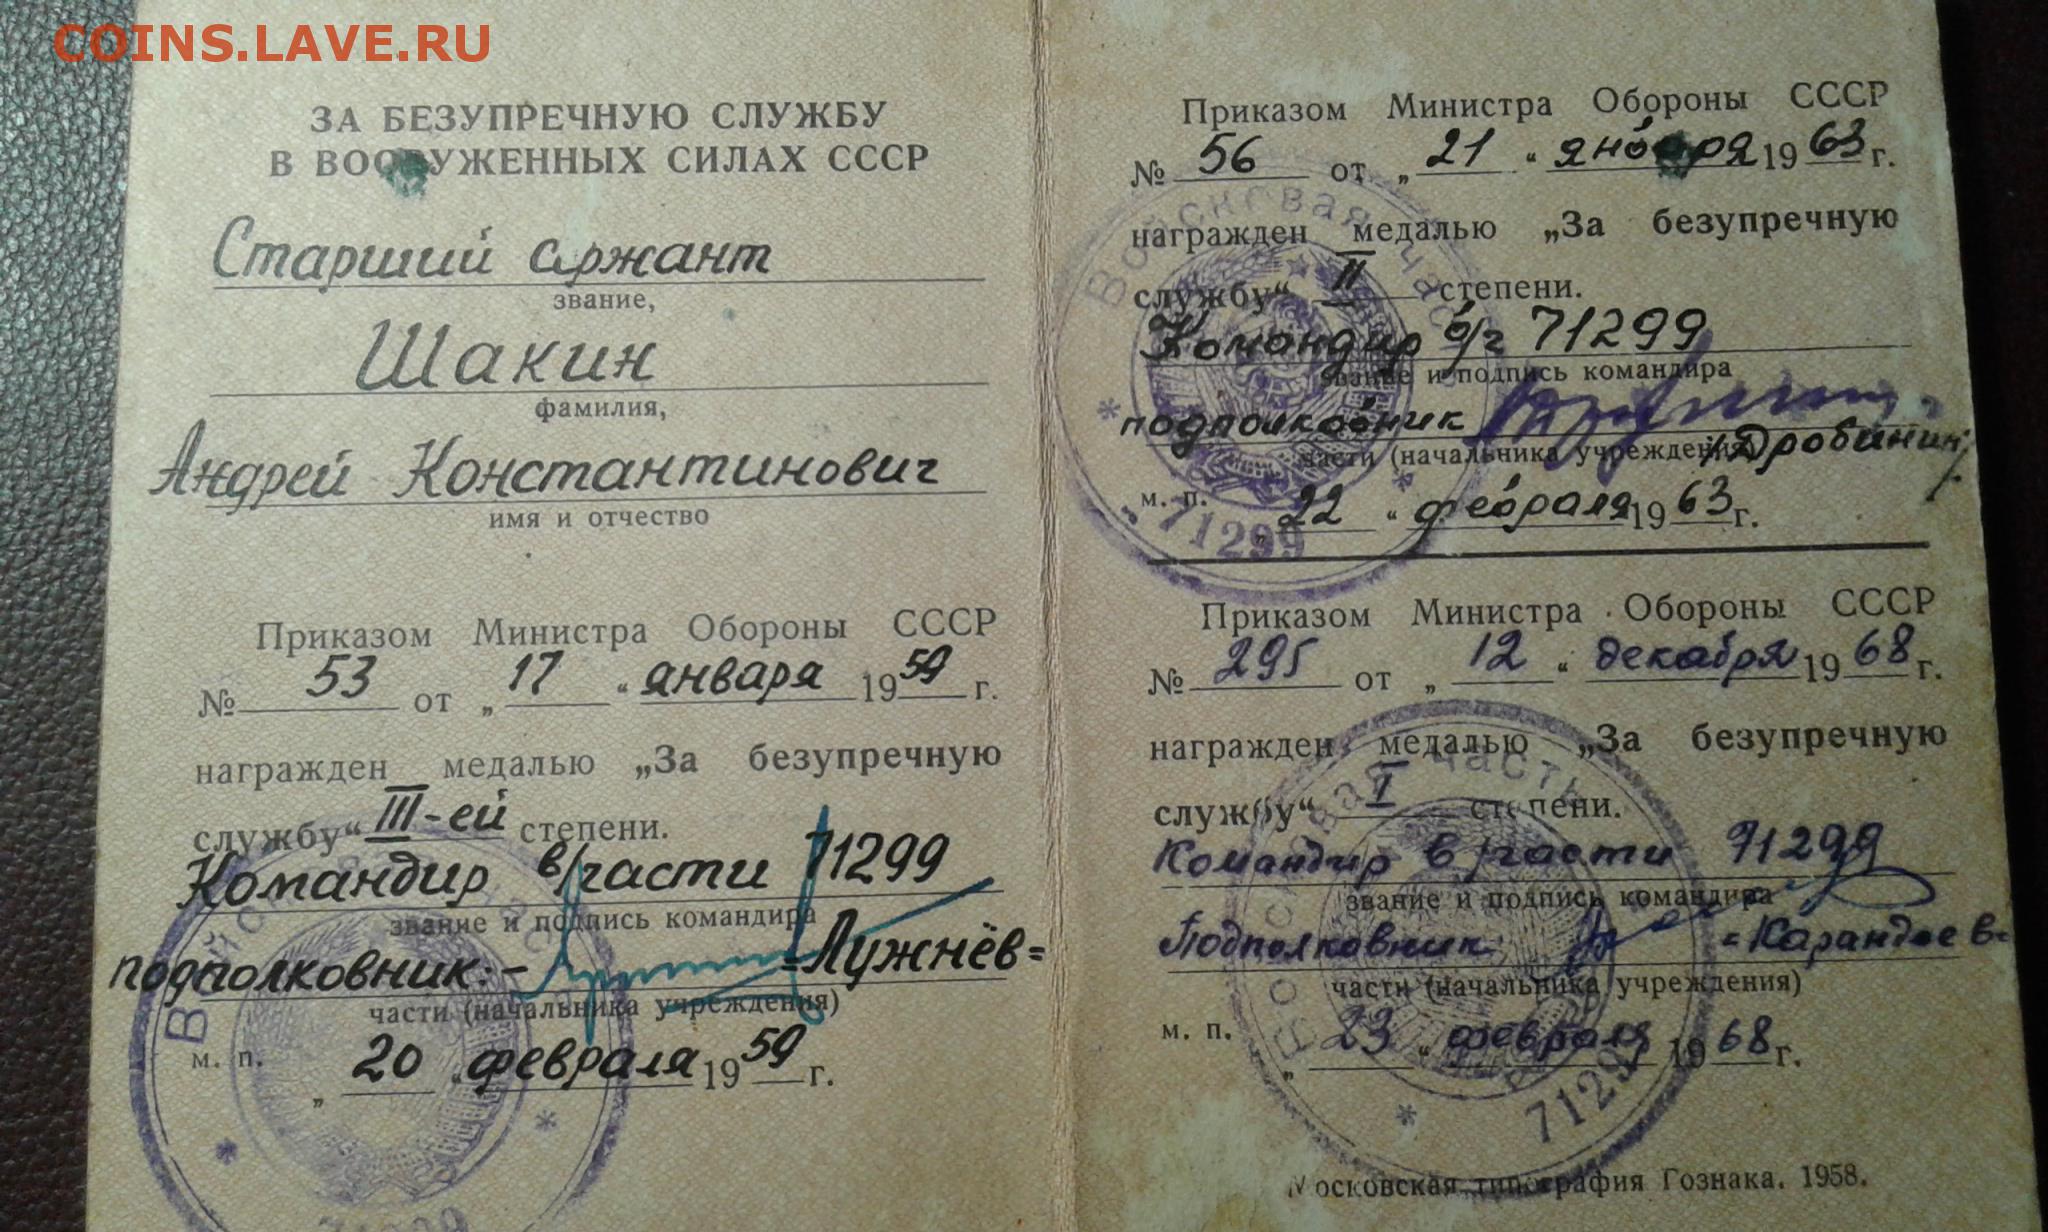 COINS.LAVE.RU
ЗА БЕЗУПРЕЧНУЮ СЛУЖБУ
В ВООРУЖЕННЫХ СИЛАХ СССР
Старший сержант
звание,
Шакин
фамилия,
Андрей Константинович
имя и отчество
Приказом Министра Обороны СССР
№ 53 от „ 17 “ января 1959 г.
награжден медалью „За безупречную
службу“ III-ей степени.
Командир в/части 71299
звание и подпись командира
подполковник:- =Лужнёв=
части (начальника учреждения)
м. п.
„ 20 “ февраля 1959 г.
71299
Приказом Министра Обороны СССР
№ 56 от „ 21 “ января 1963 г.
награжден медалью „За безупречную
службу“ II степени.
Командир в/ч 71299
звание и подпись командира
подполковник /Дробинин/
части (начальника учреждения)
м. п. „ 22 “ февраля 1963 г.
Войсковая часть
71299
Приказом Министра Обороны СССР
№ 295 от „ 12 “ декабря 1968 г.
награжден медалью „За безупречную
службу“ I степени.
Командир в/части 71299
звание и подпись командира
Подполковник =Карандаев=
части (начальника учреждения)
м. п. „ 23 “ февраля 1968 г.
Войсковая часть
71299
Московская типография Гознака. 1958.